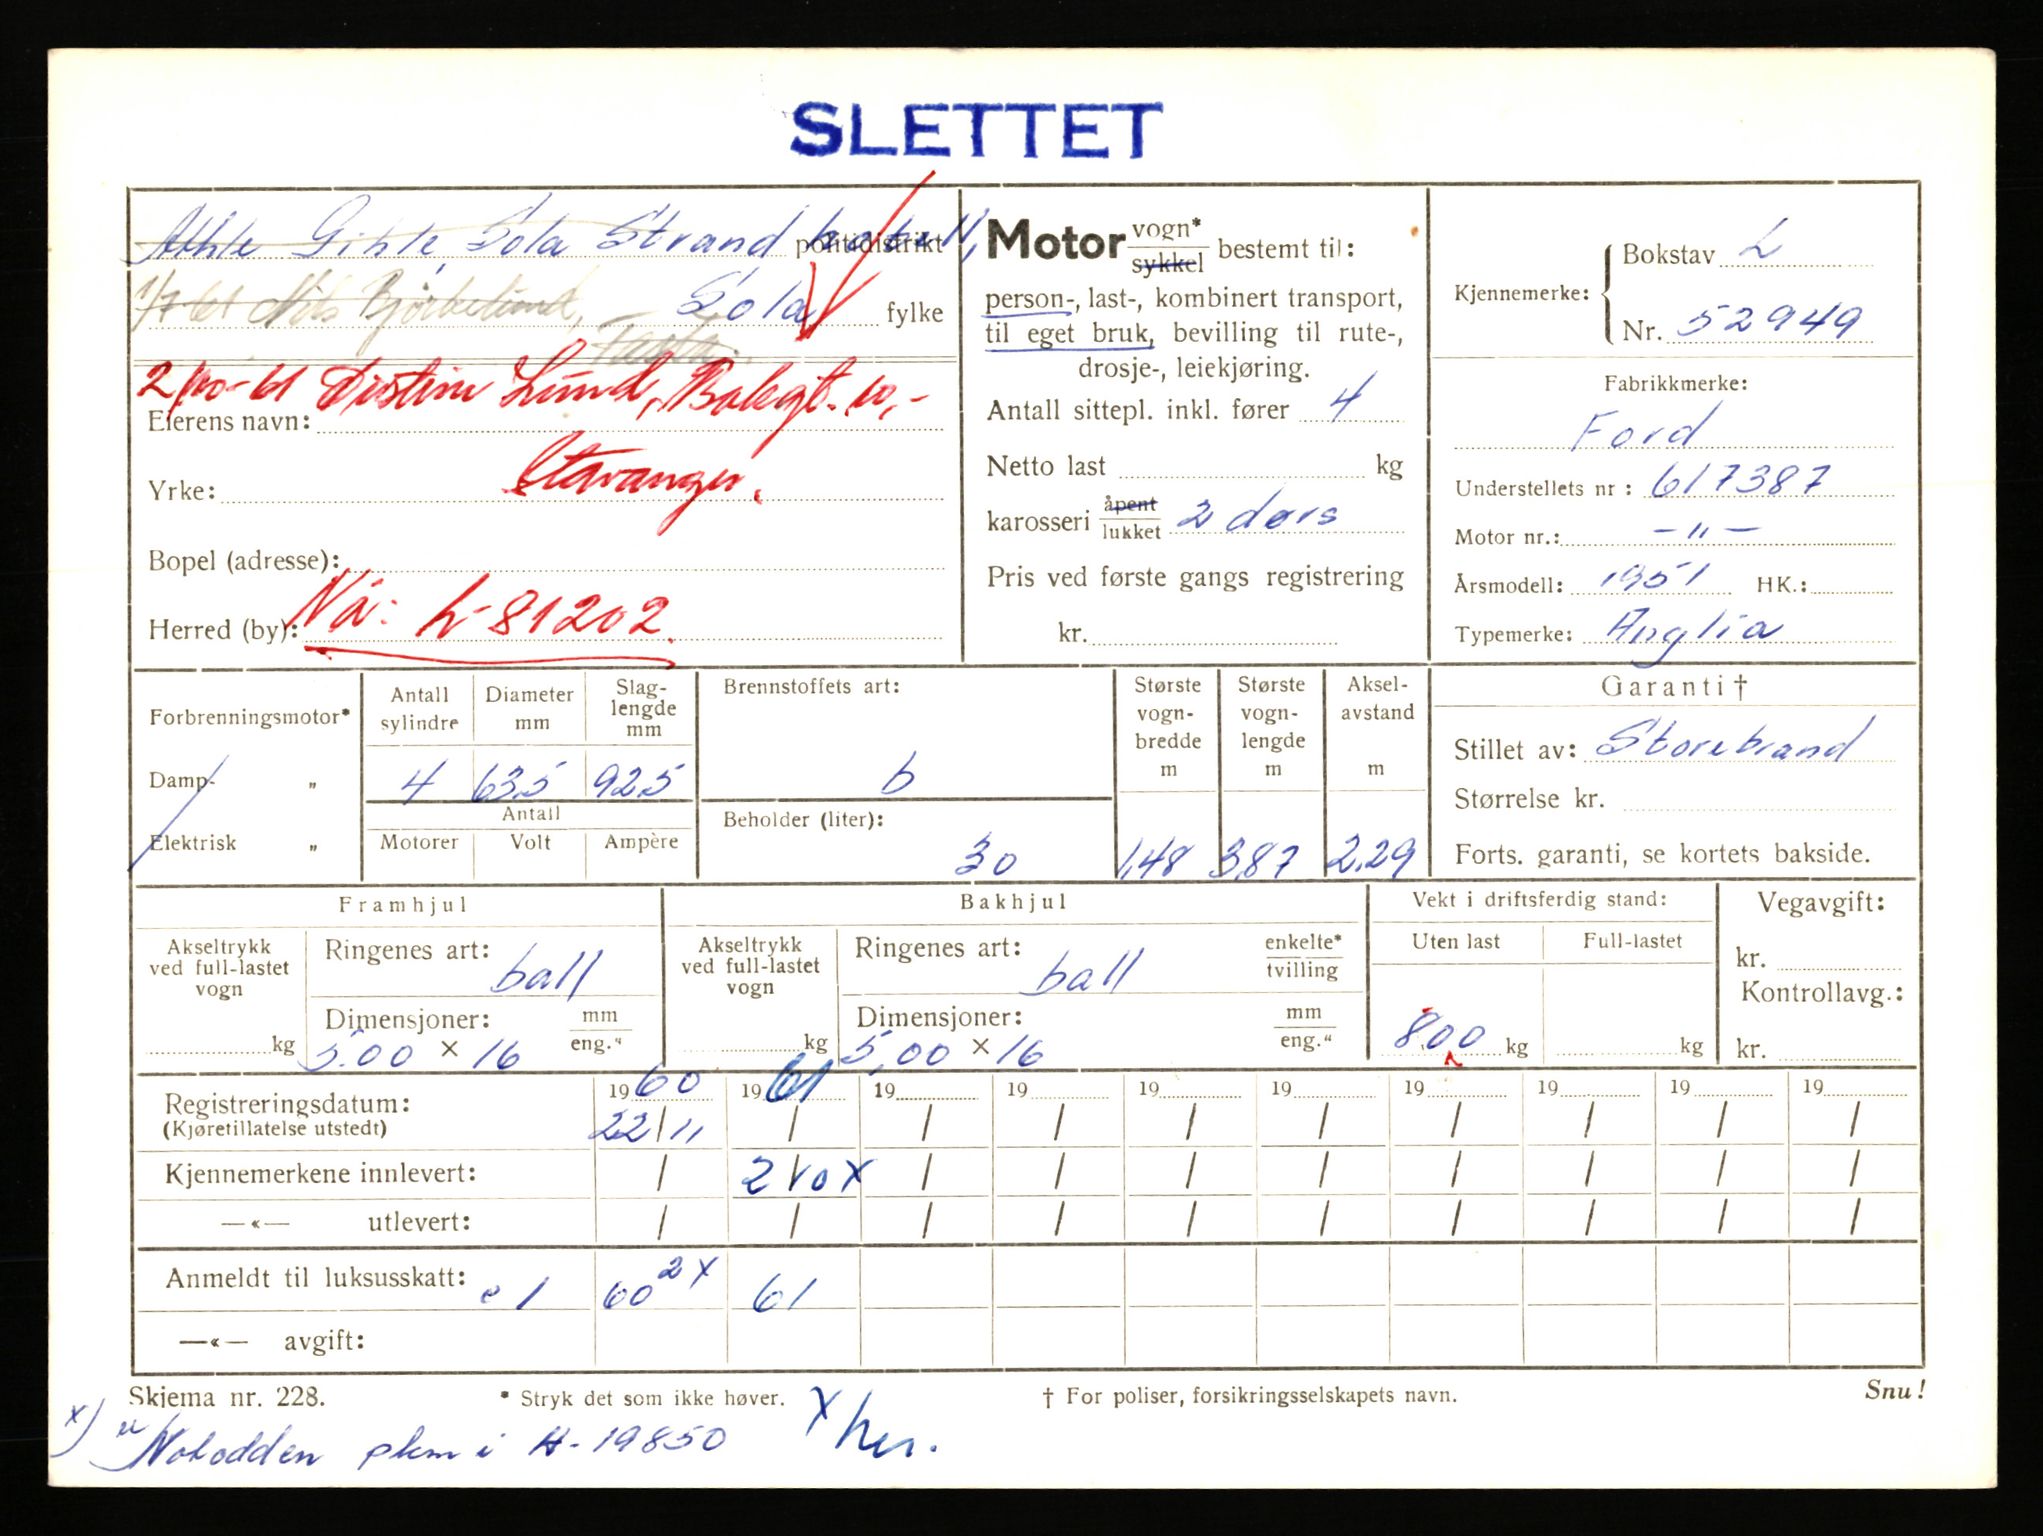 SLETTET
Athle Gihle, Sola Strand hotell, politidistrikt
1/7-61 Nils Bjørkelund, Sola fylke
Tasta.
2/10-61 Lund, Bakgt. 10,-
Eierens navn:
Stavanger.
Yrke:
Bopel (adresse):
Nå: L-81202.
Herred (by):
Motor vogn* sykkel bestemt til:
person-, last-, kombinert transport,
til eget bruk, bevilling til rute-,
drosje-, leiekjøring.
Antall sittepl. inkl. fører 4
Netto last kg
karosseri åpent lukket 2 dørs
Pris ved første gangs registrering
kr.
Kjennemerke: Bokstav L
Nr. 52949
Fabrikkmerke:
Ford
Understellets nr: 617387
Motor nr.: — " —
Årsmodell: 1951 HK.:
Typemerke: Anglia
Forbrenningsmotor*
Damp- "
Elektrisk "
Antall sylindre Diameter mm Slag-lengde mm
4 63.5 92.5
Antall
Motorer Volt Ampère
Brennstoffets art:
b
Beholder (liter):
30
Største vogn-bredde m Største vogn-lengde m Aksel-avstand m
1,48 3,87 2,29
Garanti †
Stillet av: Storebrand
Størrelse kr.
Forts. garanti, se kortets bakside.
Framhjul
Akseltrykk ved full-lastet vogn kg
Ringenes art: ball
Dimensjoner: mm eng."
5.00 × 16
Bakhjul
Akseltrykk ved full-lastet vogn kg
Ringenes art: ball enkelte* tvilling
Dimensjoner: mm eng."
5,00 × 16
Vekt i driftsferdig stand:
Uten last Full-lastet
800 kg kg
Vegavgift:
kr.
Kontrollavg.:
kr.
1960 1961 19 19 19 19 19 19 19 19
Registreringsdatum: 22/11 / / / / / / / / /
(Kjøretillatelse utstedt)
Kjennemerkene innlevert: / 2/10 x / / / / / / / /
—«— utlevert: / / / / / / / / / /
Anmeldt til luksusskatt: e 1 60 2x 61
—«— avgift:
Skjema nr. 228. * Stryk det som ikke høver. † For poliser, forsikringsselskapets navn. Snu!
x) Notodden pkm i H-19850 x her.